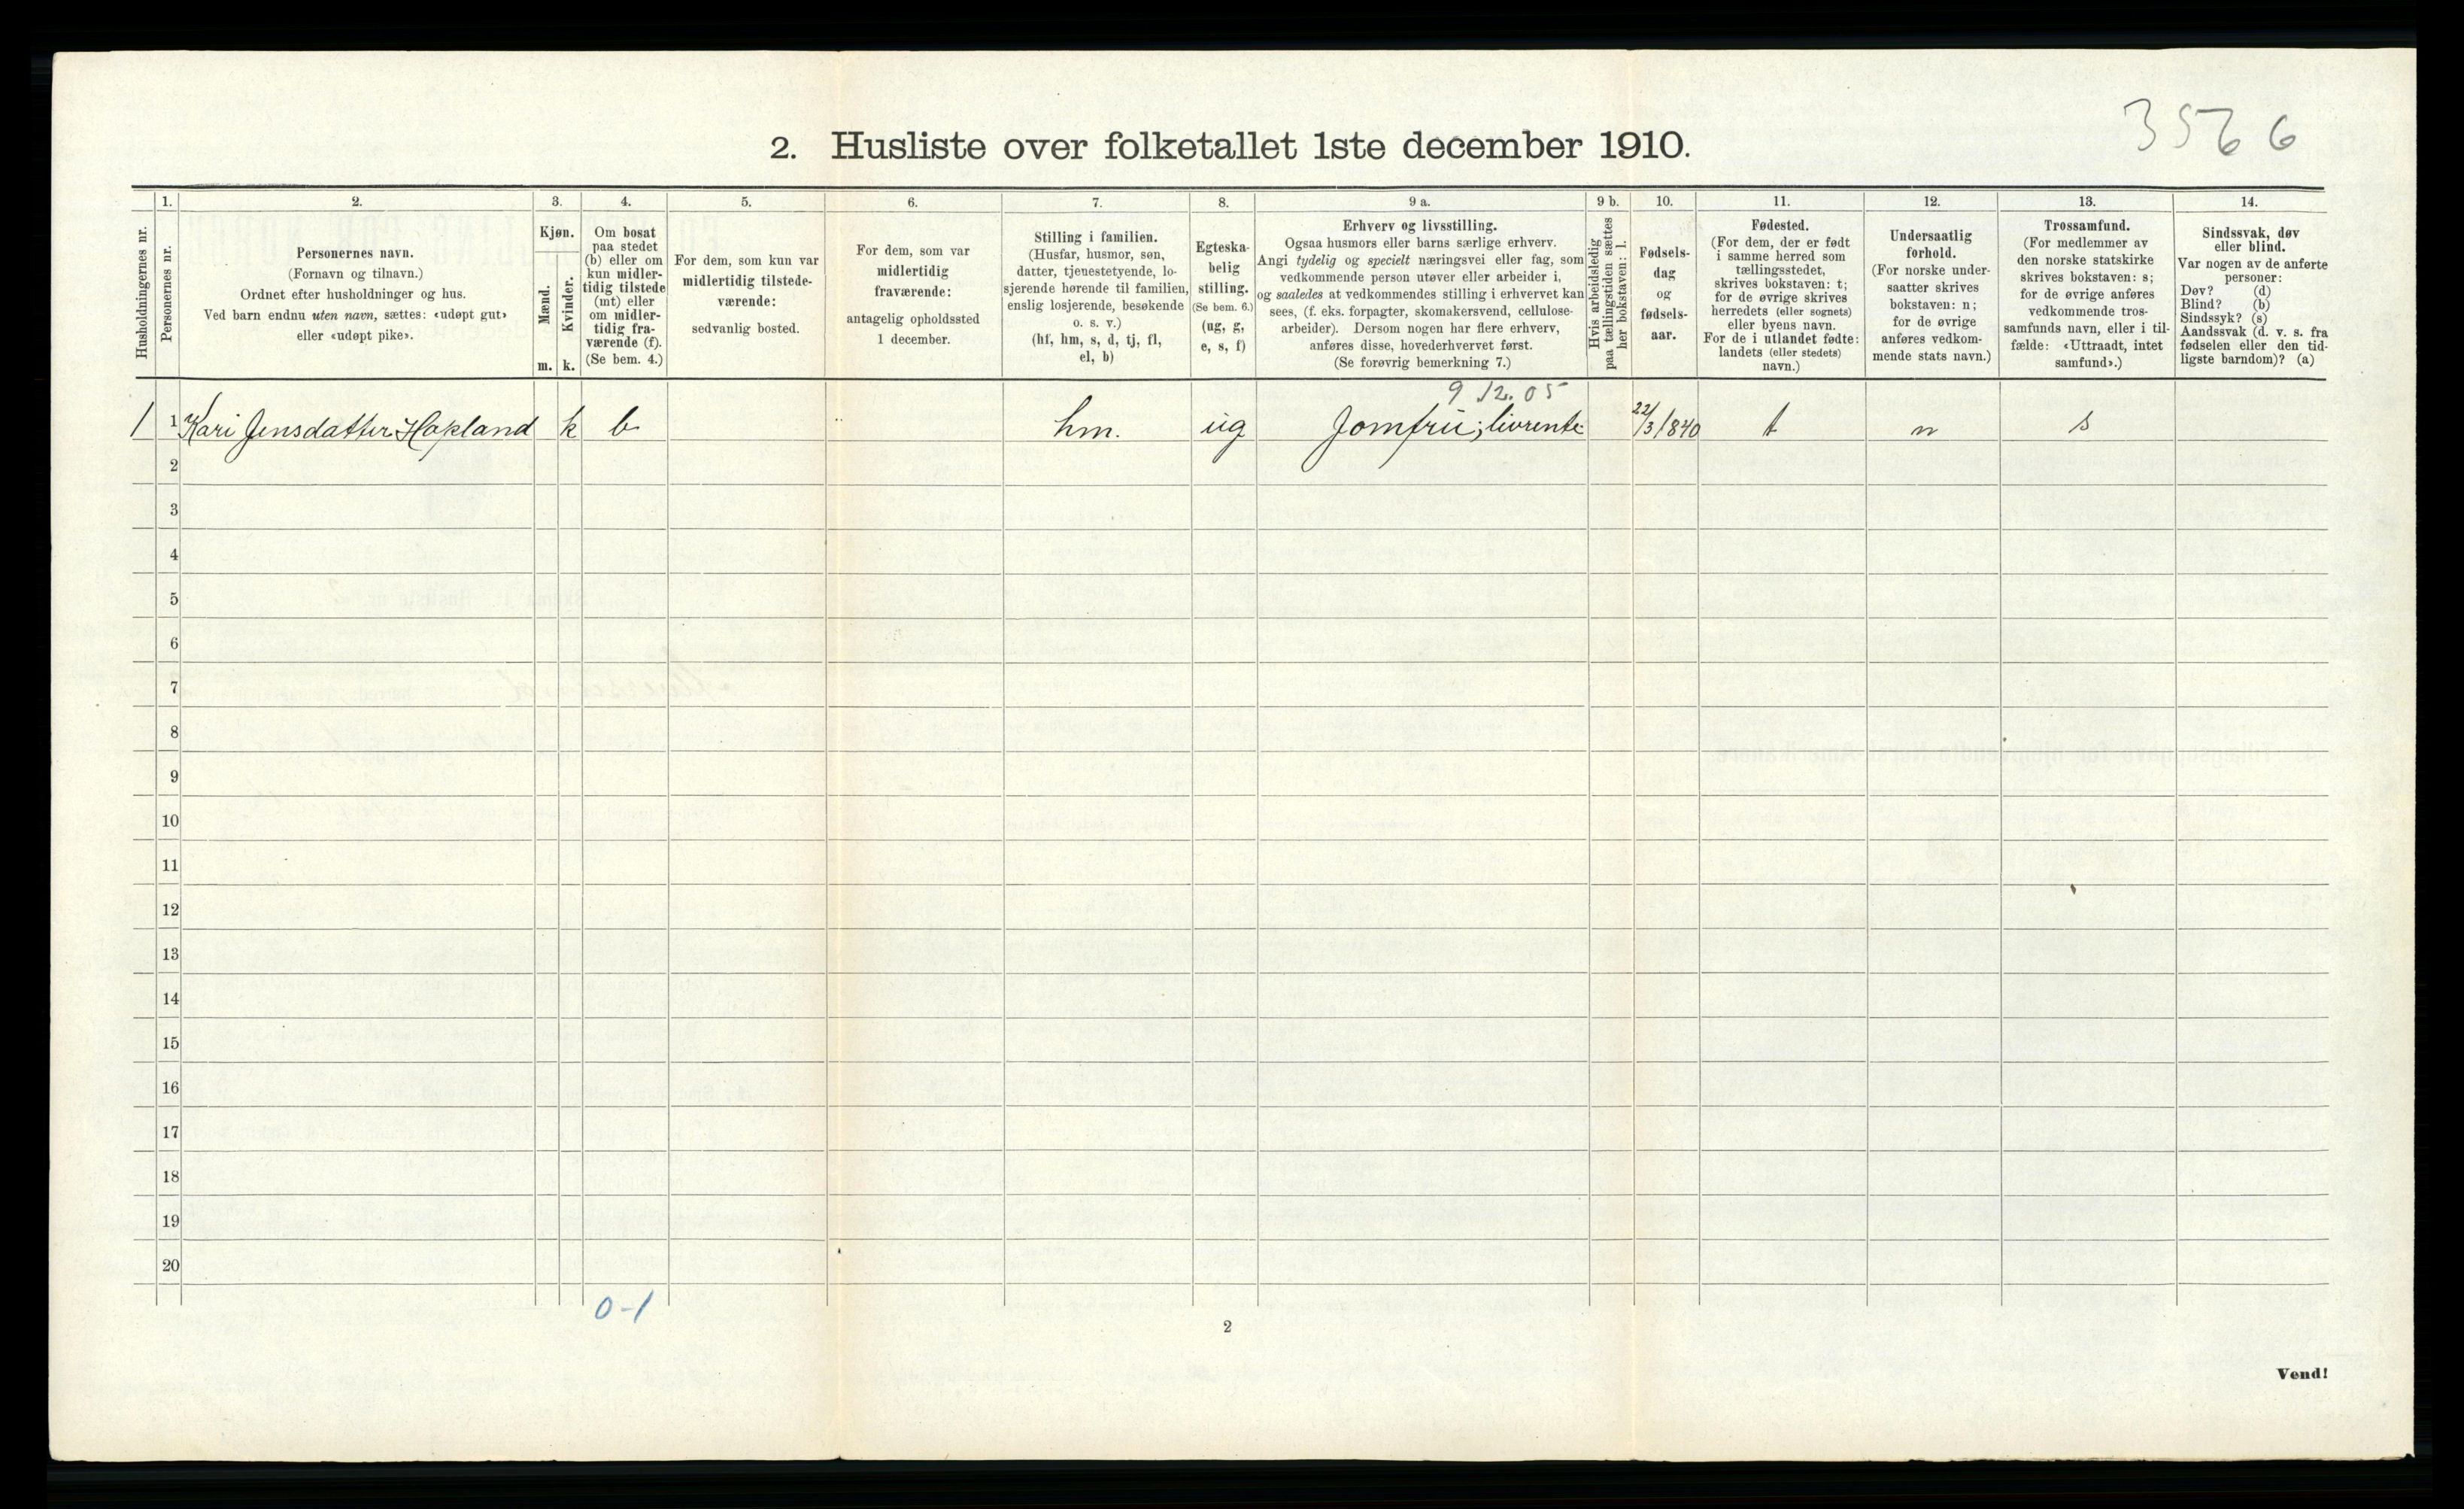 3566
2. Husliste over folketallet 1ste december 1910.
Husholdningernes nr.
1.
Personernes nr.
2.
Personernes navn.
(Fornavn og tilnavn.)
Ordnet efter husholdninger og hus.
Ved barn endnu uten navn, sættes: «udøpt gut»
eller «udøpt pike».
3.
Kjøn.
Mænd.
m.
Kvinder.
k.
4.
Om bosat
paa stedet
(b) eller om
kun midler-
tidig tilstede
(mt) eller
om midler-
tidig fra-
værende (f).
(Se bem. 4.)
5.
For dem, som kun var
midlertidig tilstede-
værende:
sedvanlig bosted.
6.
For dem, som var
midlertidig
fraværende:
antagelig opholdssted
1 december.
7.
Stilling i familien.
(Husfar, husmor, søn,
datter, tjenestetyende, lo-
sjerende hørende til familien,
enslig losjerende, besøkende
o. s. v.)
(hf, hm, s, d, tj, fl,
el, b)
8.
Egteska-
belig
stilling.
(Se bem. 6.)
(ug, g,
e, s, f)
9 a.
Erhverv og livsstilling.
Ogsaa husmors eller barns særlige erhverv.
Angi tydelig og specielt næringsvei eller fag, som
vedkommende person utøver eller arbeider i,
og saaledes at vedkommendes stilling i erhvervet kan
sees, (f. eks. forpagter, skomakersvend, cellulose-
arbeider). Dersom nogen har flere erhverv,
anføres disse, hovederhvervet først.
(Se forøvrig bemerkning 7.)
9 b.
Hvis arbeidsledig
paa tællingstiden sættes
her bokstaven: l.
10.
Fødsels-
dag
og
fødsels-
aar.
11.
Fødested.
(For dem, der er født
i samme herred som
tællingsstedet,
skrives bokstaven: t;
for de øvrige skrives
herredets (eller sognets)
eller byens navn.
For de i utlandet fødte:
landets (eller stedets)
navn.)
12.
Undersaatlig
forhold.
(For norske under-
saatter skrives
bokstaven: n;
for de øvrige
anføres vedkom-
mende stats navn.)
13.
Trossamfund.
(For medlemmer av
den norske statskirke
skrives bokstaven: s;
for de øvrige anføres
vedkommende tros-
samfunds navn, eller i til-
fælde: «Uttraadt, intet
samfund».)
14.
Sindssvak, døv
eller blind.
Var nogen av de anførte
personer:
Døv? (d)
Blind? (b)
Sindssyk? (s)
Aandssvak (d. v. s. fra
fødselen eller den tid-
ligste barndom)? (a)
9.12.05
1 1 Kari Jensdatter Hopland k b hm. ug Jomfru; livrente 22/3 1840 t n s
2
3
4
5
6
7
8
9
10
11
12
13
14
15
16
17
18
19
20
0-1
2
Vend!